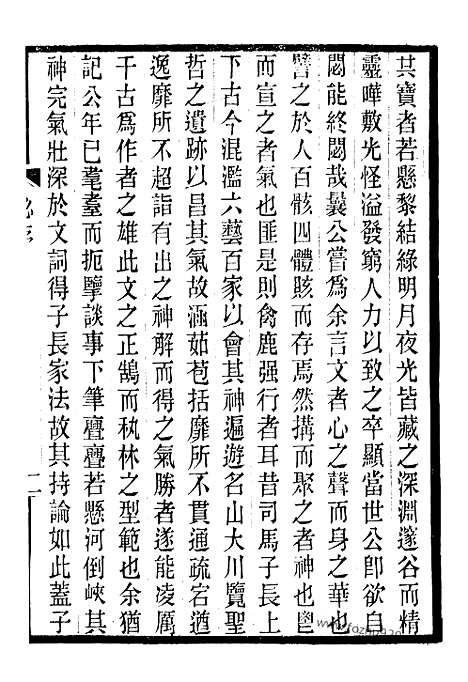 其寶者若懸黎結綠明月夜光皆藏之深淵邃谷而精
靈曄敷光怪溢發窮人力以致之卒顯當世公卽欲自
閟能終閟哉曩公嘗爲余言文者心之聲而身之華也
譬之於人百骸四體賅而存焉然搆而聚之者神也鬯
而宣之者氣也匪是則禽鹿强行者耳昔司馬子長上
下古今混濫六藝百家以會其神遍遊名山大川覽聖
哲之遺跡以昌其氣故涵茹苞括靡所不貫通疏宕遒
逸靡所不超詣有出之神解而得之氣勝者遂能凌厲
千古爲作者之雄此文之正鵠而秇林之型範也余猶
記公年已耄耋而扼擥談事下筆亹亹若懸河倒峽其
神完氣壯深於文詞得子長家法故其持論如此蓋子
序
二